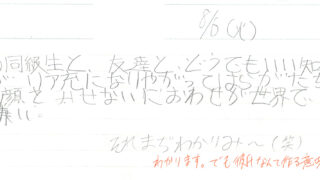 8/6(火)
の同級生と、友達と、どうでもいい知
がリア充になりやがって
顔を みせないにおわせが世界で
嫌い。
それまぢわかりみ〜(笑)
わかります。でも彼氏なんて作る意